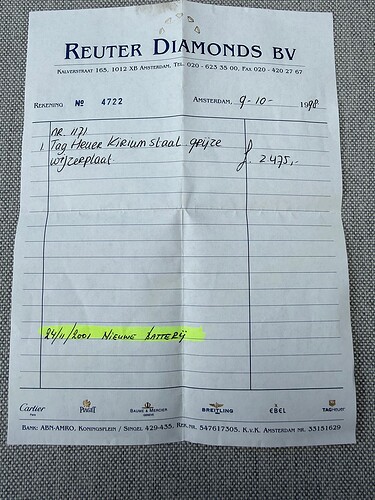 REUTER DIAMONDS BV
KALVERSTRAAT 165, 1012 XB AMSTERDAM, TEL. 020 - 623 35 00, FAX 020 - 420 27 67
REKENING № 4722 AMSTERDAM, 9-10- 1998
NR. 1171
1 Tag Heuer Kirium staal grijze
wijzerplaat. f. 2475,-
24/11/2001 NIEUWE BATTERIJ
Cartier PIAGET BAUME & MERCIER GENEVE BREITLING EBEL TAGHeuer
BANK: ABN-AMRO, KONINGSPLEIN / SINGEL 429-435, REK.NR. 547617305, K.V.K. AMSTERDAM NR. 33151629